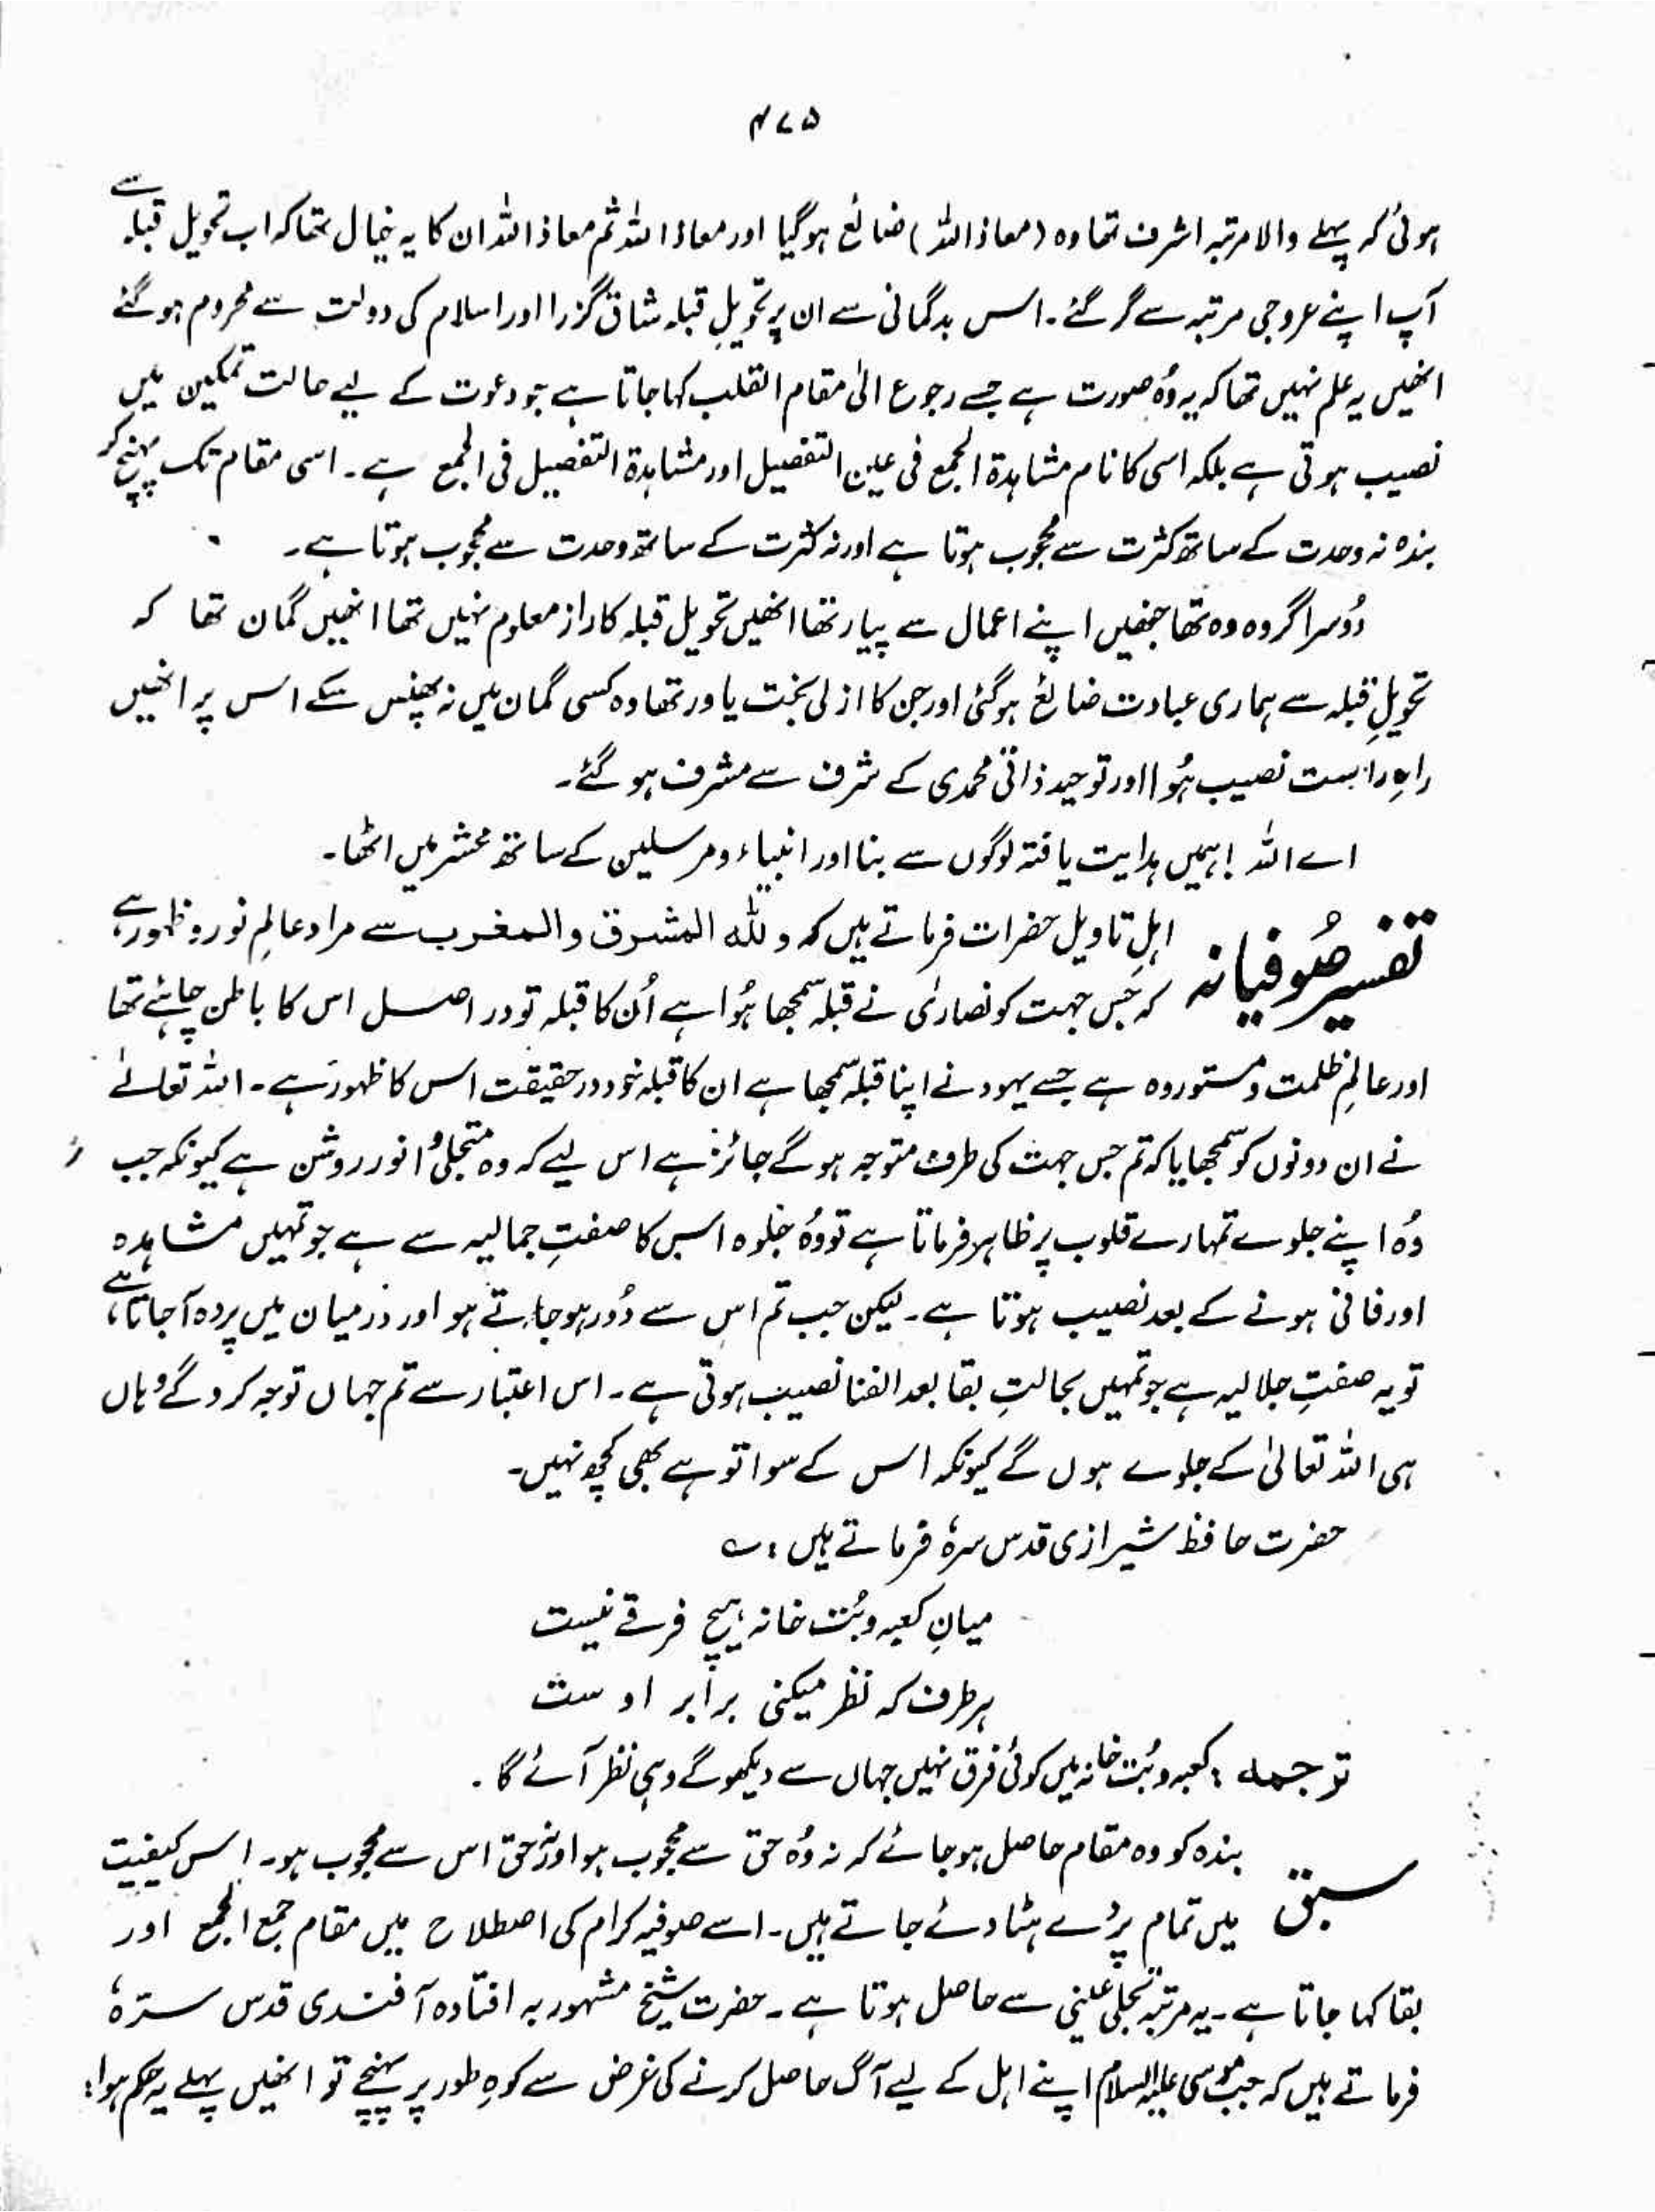 ۴۷۵
ہوئی کہ پہلے والا مرتبہ اشرف تھا وہ (معاذ اللہ) ضائع ہوگیا اور معاذ اللہ ثم معاذ اللہ ان کا یہ خیال تھا کہ اب تحویل قبلہ سے
آپ اپنے عروجی مرتبہ سے گر گئے۔ اس بدگمانی سے ان پر تحویلِ قبلہ شاق گزرا اور اسلام کی دولت سے محروم ہوگئے
انھیں یہ علم نہیں تھا کہ یہ وُہ صورت ہے جسے رجوع الیٰ مقام القلب کہا جاتا ہے جو دعوت کے لیے حالت تمکین میں
نصیب ہوتی ہے بلکہ اسی کا نام مشاہدۃ الجمع فی عین التفصیل اور مشاہدۃ التفصیل فی الجمع ہے۔ اسی مقام تک پہنچ کر
بندہ نہ وحدت کے ساتھ کثرت سے محجوب ہوتا ہے اور نہ کثرت کے ساتھ وحدت سے محجوب ہوتا ہے۔
دُوسرا گروہ وہ تھا جنھیں اپنے اعمال سے پیار تھا انھیں تحویل قبلہ کا راز معلوم نہیں تھا انھیں گمان تھا کہ
تحویلِ قبلہ سے ہماری عبادت ضائع ہوگئی اور جن کا ازلی بخت یاور تھا وہ کسی گمان میں نہ پھنس سکے اس پر انھیں
راہِ راست نصیب ہُوا اور توحید ذاتی محمدی کے شرف سے مشرف ہوگئے۔
اے اللہ! ہمیں ہدایت یافتہ لوگوں سے بنا اور انبیاء و مرسلین کے ساتھ محشر میں اٹھا۔
تفسیر صُوفیانہ اہلِ تاویل حضرات فرماتے ہیں کہ وللّٰہ المشرق والمغرب سے مراد عالمِ نور و ظہور ہے،
کہ جس جہت کو نصاریٰ نے قبلہ سمجھا ہُوا ہے اُن کا قبلہ تو در اصل اس کا باطن چاہئے تھا
اور عالمِ ظلمت و مستور وہ ہے جسے یہود نے اپنا قبلہ سمجھا ہے ان کا قبلہ خود در حقیقت اس کا ظہور ہے۔ اللہ تعالےٰ
نے ان دونوں کو سمجھایا کہ تم جس جہت کی طرف متوجہ ہوگے جائز ہے اس لیے کہ وہ متجلی و انور روشن ہے کیونکہ جب
وُہ اپنے جلوے تمہارے قلوب پر ظاہر فرماتا ہے تو وُہ جلوہ اس کا صفتِ جمالیہ سے ہے جو تمہیں مشاہدہ
اور فانی ہونے کے بعد نصیب ہوتا ہے۔ لیکن جب تم اس سے دُور ہوجاتے ہو اور درمیان میں پردہ آجاتا ہے،
تو یہ صفتِ جلالیہ ہے جو تمہیں بحالتِ بقا بعد الفنا نصیب ہوتی ہے۔ اس اعتبار سے تم جہاں توجہ کرو گے وہاں
ہی اللہ تعالیٰ کے جلوے ہوں گے کیونکہ اس کے سوا تو ہے بھی کچھ نہیں۔
حضرت حافظ شیرازی قدس سرہٗ فرماتے ہیں : ؎
میانِ کعبہ و بُت خانہ ہیچ فرقے نیست
ہر طرف کہ نظر میکنی برابر اوست
ترجمہ : کعبہ و بُت خانہ میں کوئی فرق نہیں جہاں سے دیکھو گے وہی نظر آئے گا۔
سبق بندہ کو وہ مقام حاصل ہوجائے کہ نہ وُہ حق سے محجوب ہو اور نہ حق اس سے محجوب ہو۔ اس کیفیت
میں تمام پردے ہٹا دئے جاتے ہیں۔ اسے صوفیہ کرام کی اصطلاح میں مقام جمع الجمع اور
بقا کہا جاتا ہے۔ یہ مرتبہ تجلی عینی سے حاصل ہوتا ہے۔ حضرت شیخ مشہور بہ افتادہ آفندی قدس سرّہٗ
فرماتے ہیں کہ جب موسی علیہ السلام اپنے اہل کے لیے آگ حاصل کرنے کی غرض سے کوہِ طور پر پہنچے تو انھیں پہلے یہ حکم ہوا: